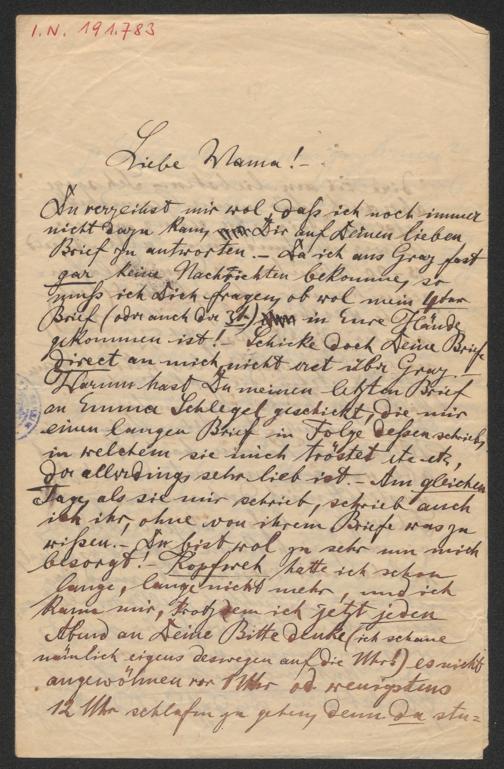 I.N. 191.783
Liebe Mama! –
Du verzeihst mir wol, daß ich noch immer
nicht dazu kam, Dir auf Deinen lieben
Brief zu antworten. – Da ich aus Graz fast
gar keine Nachrichten bekomme, so
muß ich Dich fragen, ob wol mein 4ter
Brief (oder auch der 3te) in Eure Hände
gekommen ist! – Schicke doch Deine Briefe
direct an mich, nicht erst über Graz. –
Warum hast Du meinen letzten Brief
an Emma Schlegel geschickt, die mir
einen langen Brief in Folge dessen schrieb,
in welchem sie mich tröstet etc etc,
der allerdings sehr lieb ist. – Am gleichen
Tage, als sie mir schrieb, schrieb auch
ich ihr, ohne von ihrem Briefe was zu
wißen. – Du bist wol zu sehr um mich
besorgt! – Kopfweh hatte ich schon
lange, lange nicht mehr, und ich
kann mir, trotzdem ich jetzt jeden
Abend an Deine Bitte denke (ich schaue
nämlich eigens deswegen auf die Uhr!) es nicht
angewöhnen vor 1 Uhr od. wenigstens
12 Uhr schlafen zu gehen, denn da stu=